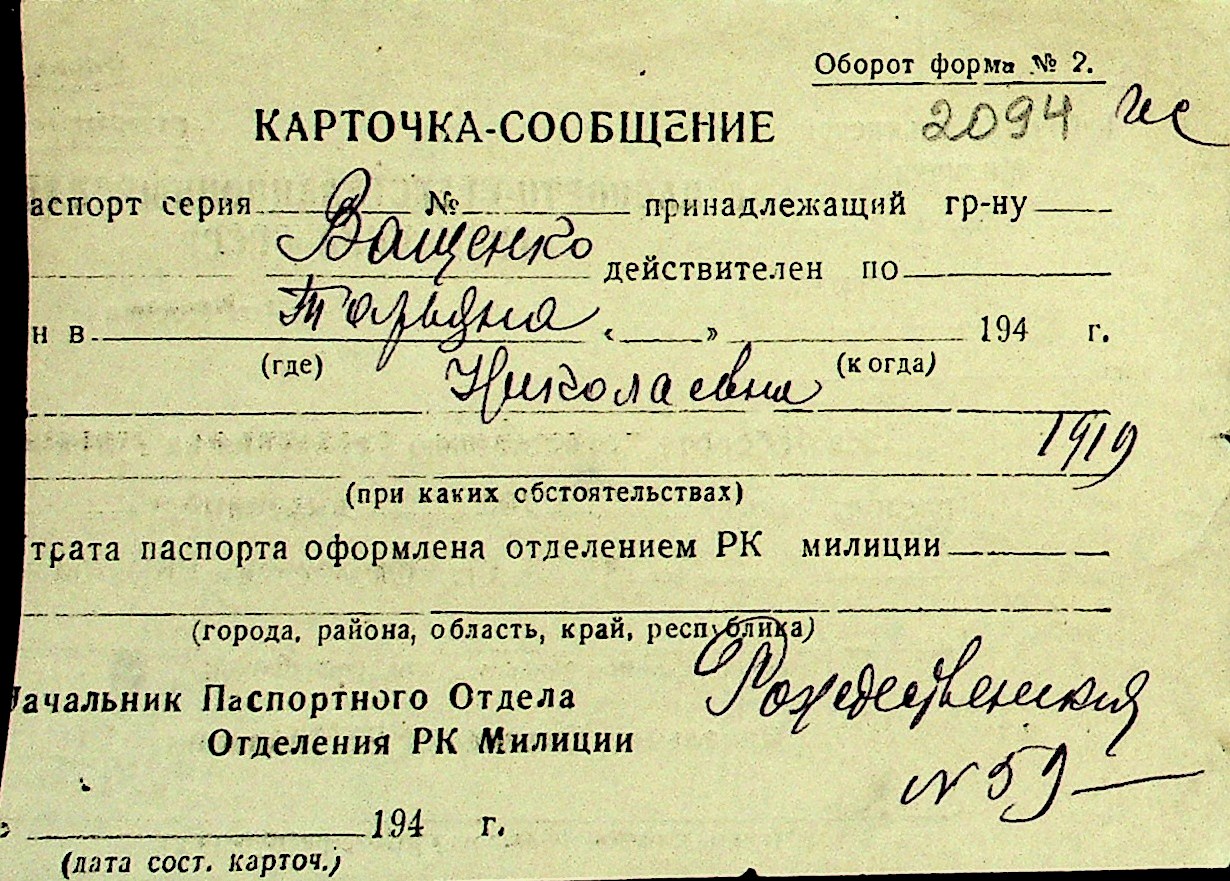 Оборот форма № 2.
2094
КАРТОЧКА-СООБЩЕНИЕ
аспорт серия № принадлежащий гр-ну
Ващенко
действителен по
Татьяна
н в « » 194 г.
(где) (когда)
Николаевна
1919
(при каких обстоятельствах)
трата паспорта оформлена отделением РК милиции
(города, района, область, край, республика)
Рождественская
Начальник Паспортного Отдела
Отделения РК Милиции
№ 59
194 г.
(дата сост. карточ.)